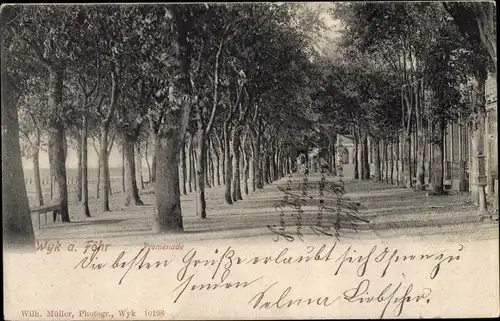 Wyk a. Föhr
Promenade
Die besten Grüße erlaubt sich Ihnen zu
senden
Selma Liebscher.
Wilh. Müller, Photogr., Wyk 10198